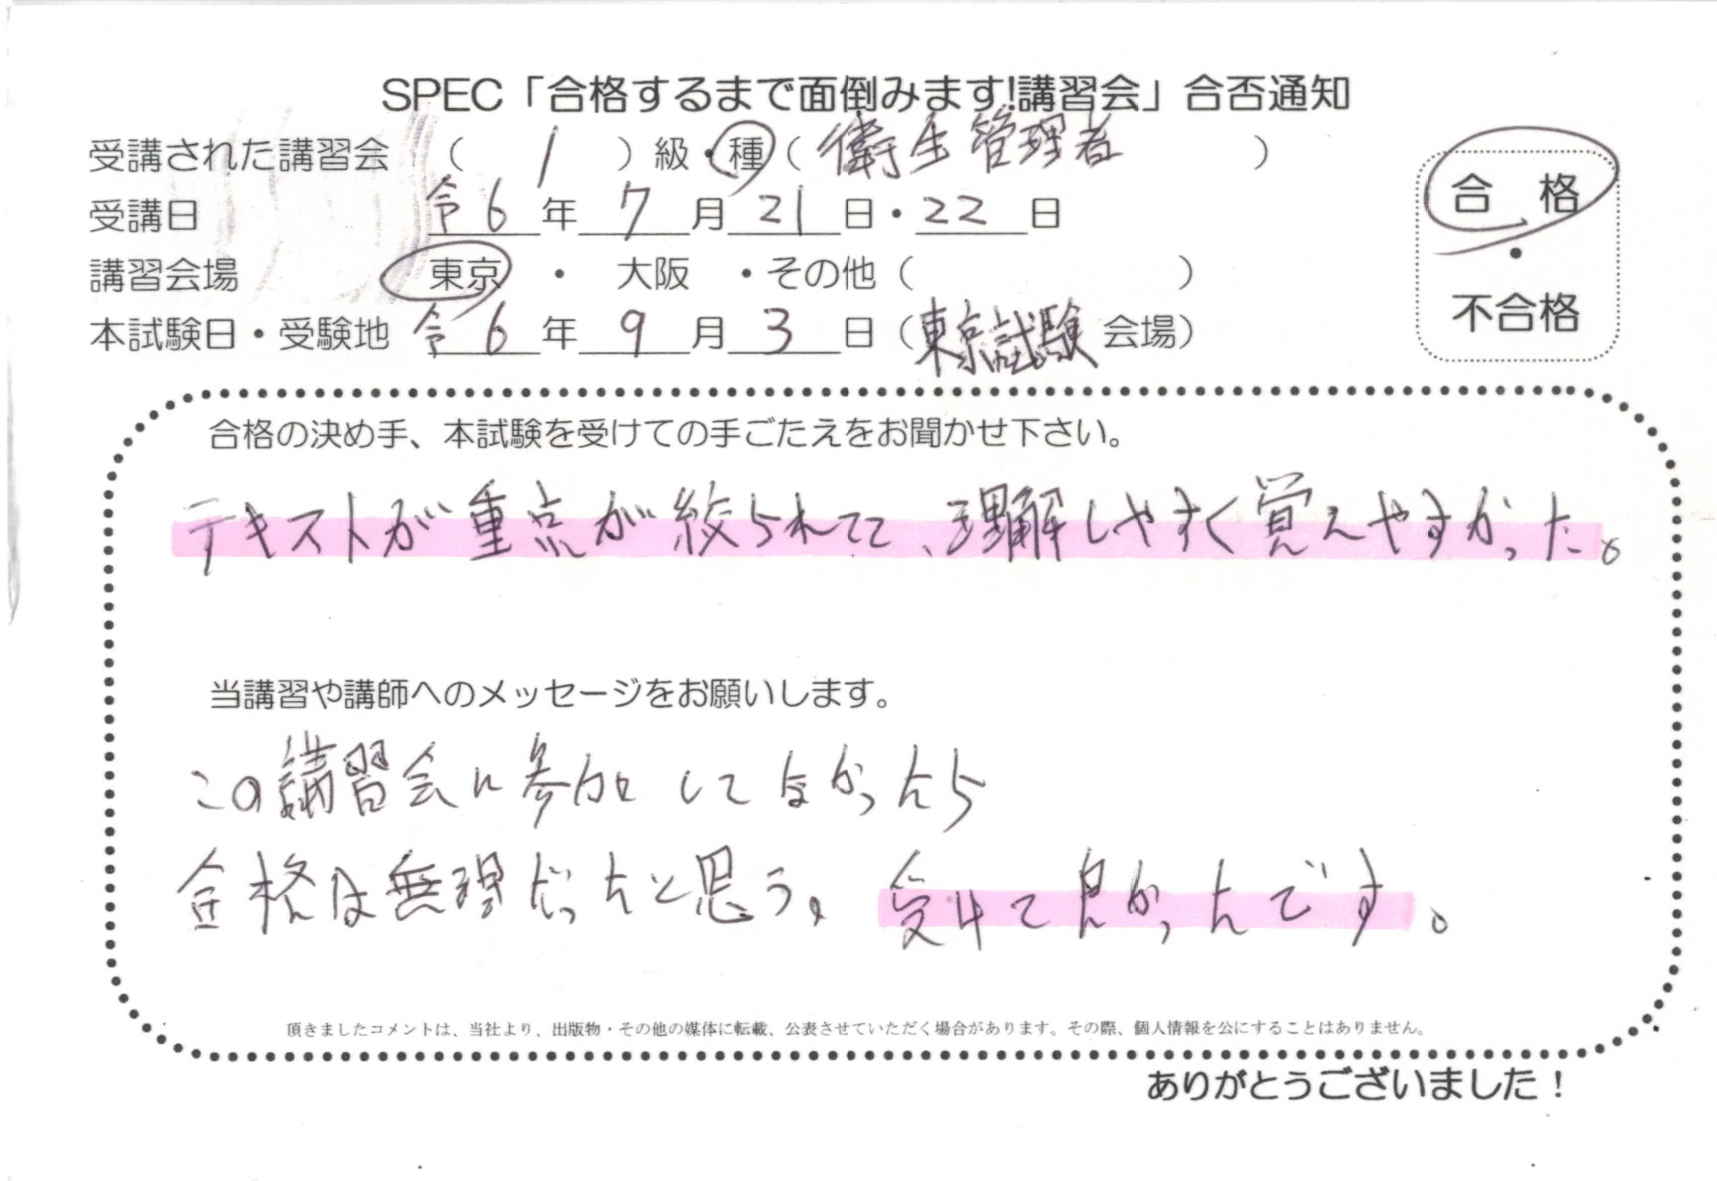 SPEC「合格するまで面倒みます!講習会」合否通知
受講された講習会 （ 1 ）級・種（ 衛生管理者 ）
受講日 令6年 7月 21日・22日
講習会場 東京 ・ 大阪 ・その他（ ）
本試験日・受験地 令6年 9月 3日（東京試験 会場）
合 格
・
不合格
合格の決め手、本試験を受けての手ごたえをお聞かせ下さい。
テキストが重点が絞られてて、理解しやすく覚えやすかった。
当講習や講師へのメッセージをお願いします。
この講習会に参加してなかったら
合格は無理だったと思う。受けて良かったんです。
頂きましたコメントは、当社より、出版物・その他の媒体に転載、公表させていただく場合があります。その際、個人情報を公にすることはありません。
ありがとうございました！